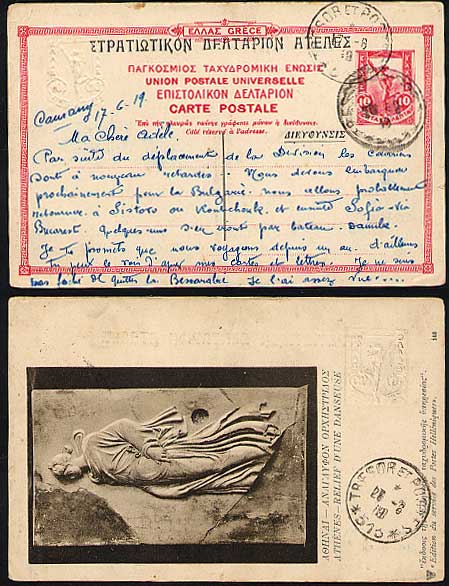 ΕΛΛΑΣ GRÈCE
ΣΤΡΑΤΙΩΤΙΚΟΝ ΔΕΛΤΑΡΙΟΝ ΑΤΕΛΕΣ
ΠΑΓΚΟΣΜΙΟΣ ΤΑΧΥΔΡΟΜΙΚΗ ΕΝΩΣΙΣ
UNION POSTALE UNIVERSELLE
ΕΠΙΣΤΟΛΙΚΟΝ ΔΕΛΤΑΡΙΟΝ
CARTE POSTALE
Ἐπὶ τῆς πλευρᾶς ταύτης γράφεται μόνον ἡ διεύθυνσις.
Côté réservé à l'adresse.
ΔΙΕΥΘΥΝΣΙΣ
10 10
17-6-19
Ma Chère Adèle.
Par suite du déplacement de la Division les courriers
sont à nouveau retardés. Nous devons embarquer
prochainement pour la Bulgarie. nous allons probablement
retourner à Sistovo ou Roustchouk. et ensuite Sofia via
Bucarest. quelques-uns iront par bateau. Danube.
Je te promets que nous voyageons depuis un an. d'ailleurs
tu peux le voir d'après mes cartes et lettres. Je ne suis
pas fâché de quitter la Bessarabie. Je l'ai assez vue.....
ΑΘΗΝΑΙ—ΑΝΑΓΛΥΦΟΝ ΟΡΧΗΣΤΡΙΔΟΣ
ATHÈNES—RELIEF D'UNE DANSEUSE
TRESOR ET POSTES
"Ἔκδοσις τῆς Ἑλληνικῆς ταχυδρομικῆς ὑπηρεσίας".
"Edition du service des Postes Helléniques".